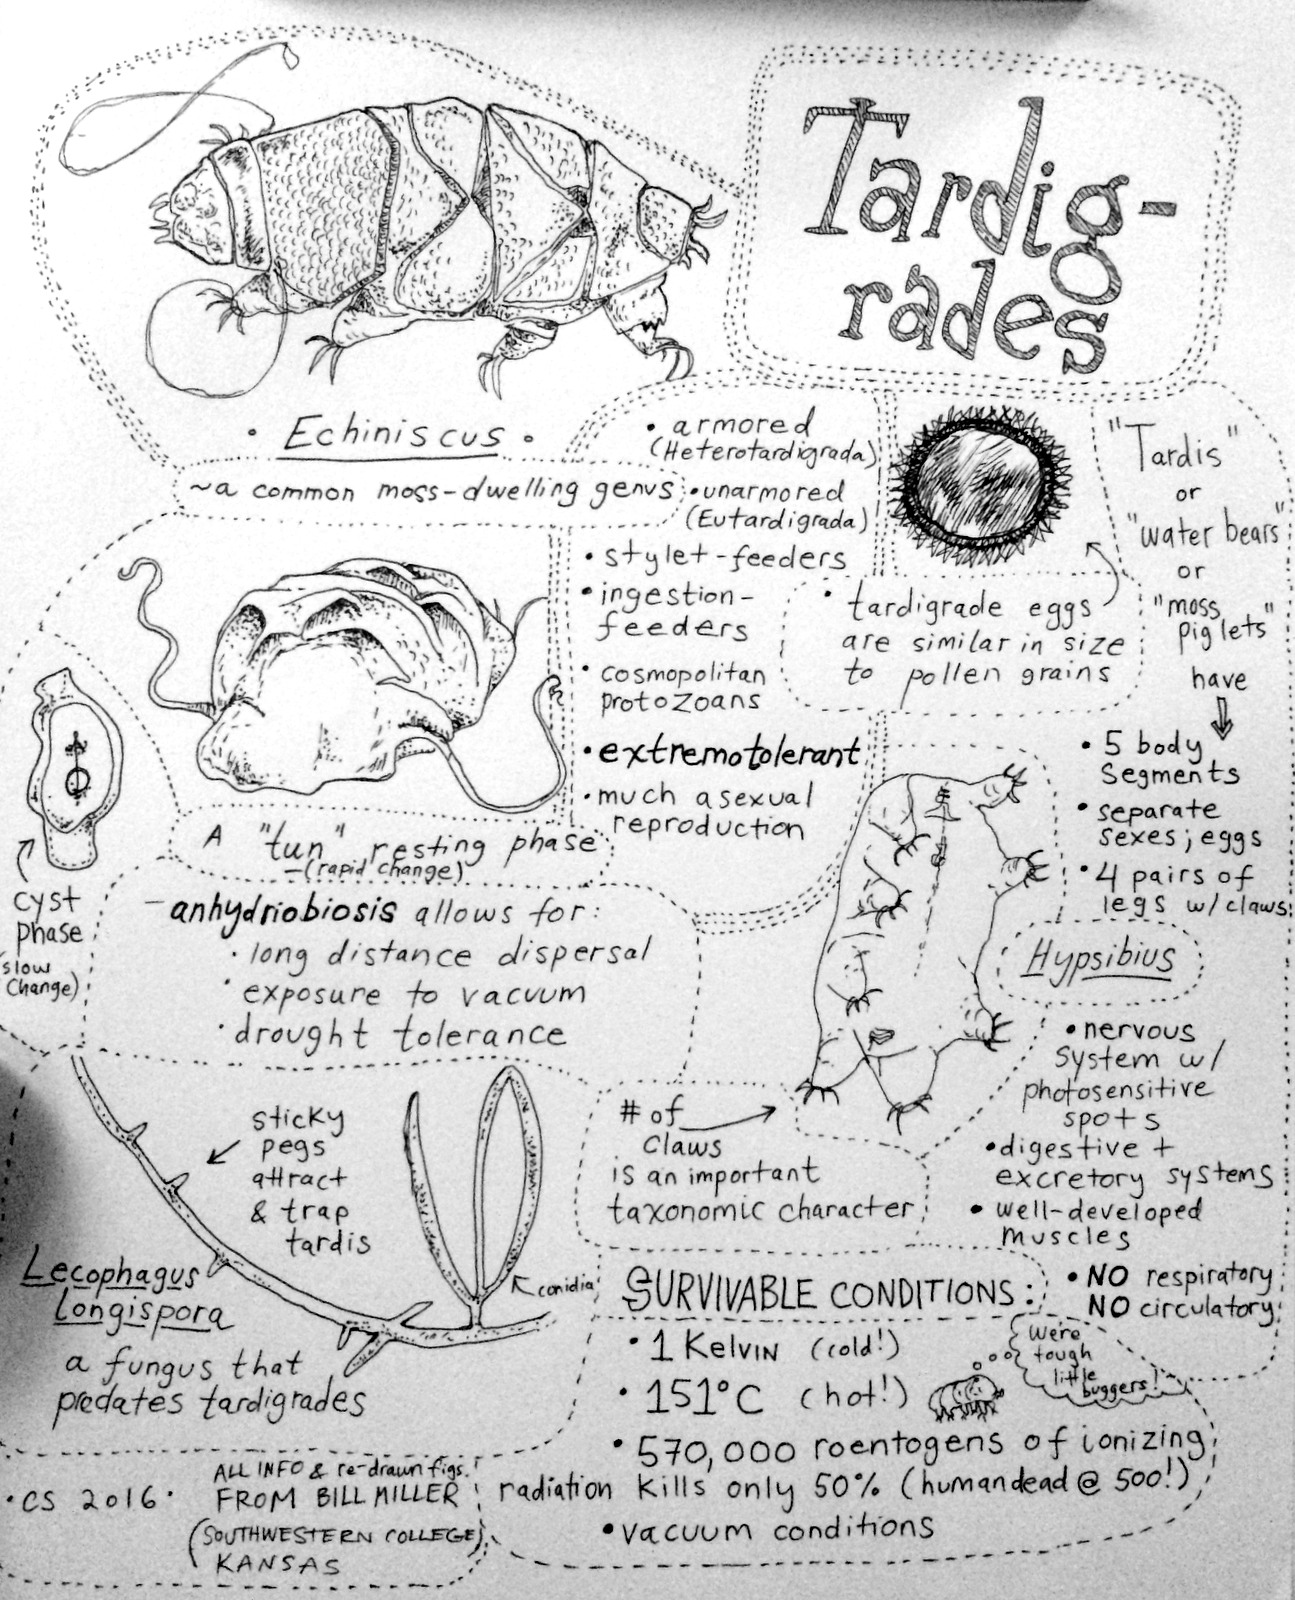 Tardig-
rades
• Echiniscus •
~a common moss-dwelling genus
• armored
(Heterotardigrada)
• unarmored
(Eutardigrada)
• stylet-feeders
• ingestion-
feeders
• cosmopolitan
protozoans
• extremotolerant
• much asexual
reproduction
• tardigrade eggs
are similar in size
to pollen grains
"Tardis"
or
"water bears"
or
"moss
piglets"
have
• 5 body
segments
• separate
sexes; eggs
• 4 pairs of
legs w/ claws
A "tun" resting phase
-(rapid change)
cyst
phase
(slow
change)
- anhydriobiosis allows for:
• long distance dispersal
• exposure to vacuum
• drought tolerance
Hypsibius
• nervous
system w/
photosensitive
spots
• digestive +
excretory systems
• well-developed
muscles
• NO respiratory
NO circulatory
# of
claws
is an important
taxonomic character
sticky
pegs
attract
& trap
tardis
conidia
Lecophagus
longispora
a fungus that
predates tardigrades
SURVIVABLE CONDITIONS:
• 1 Kelvin (cold!)
• 151°C (hot!)
We're
tough
little
buggers!
• 570,000 roentogens of ionizing
radiation kills only 50% (human dead @ 500!)
• vacuum conditions
• CS 2016 •
ALL INFO & re-drawn figs.
FROM BILL MILLER
(SOUTHWESTERN COLLEGE)
KANSAS